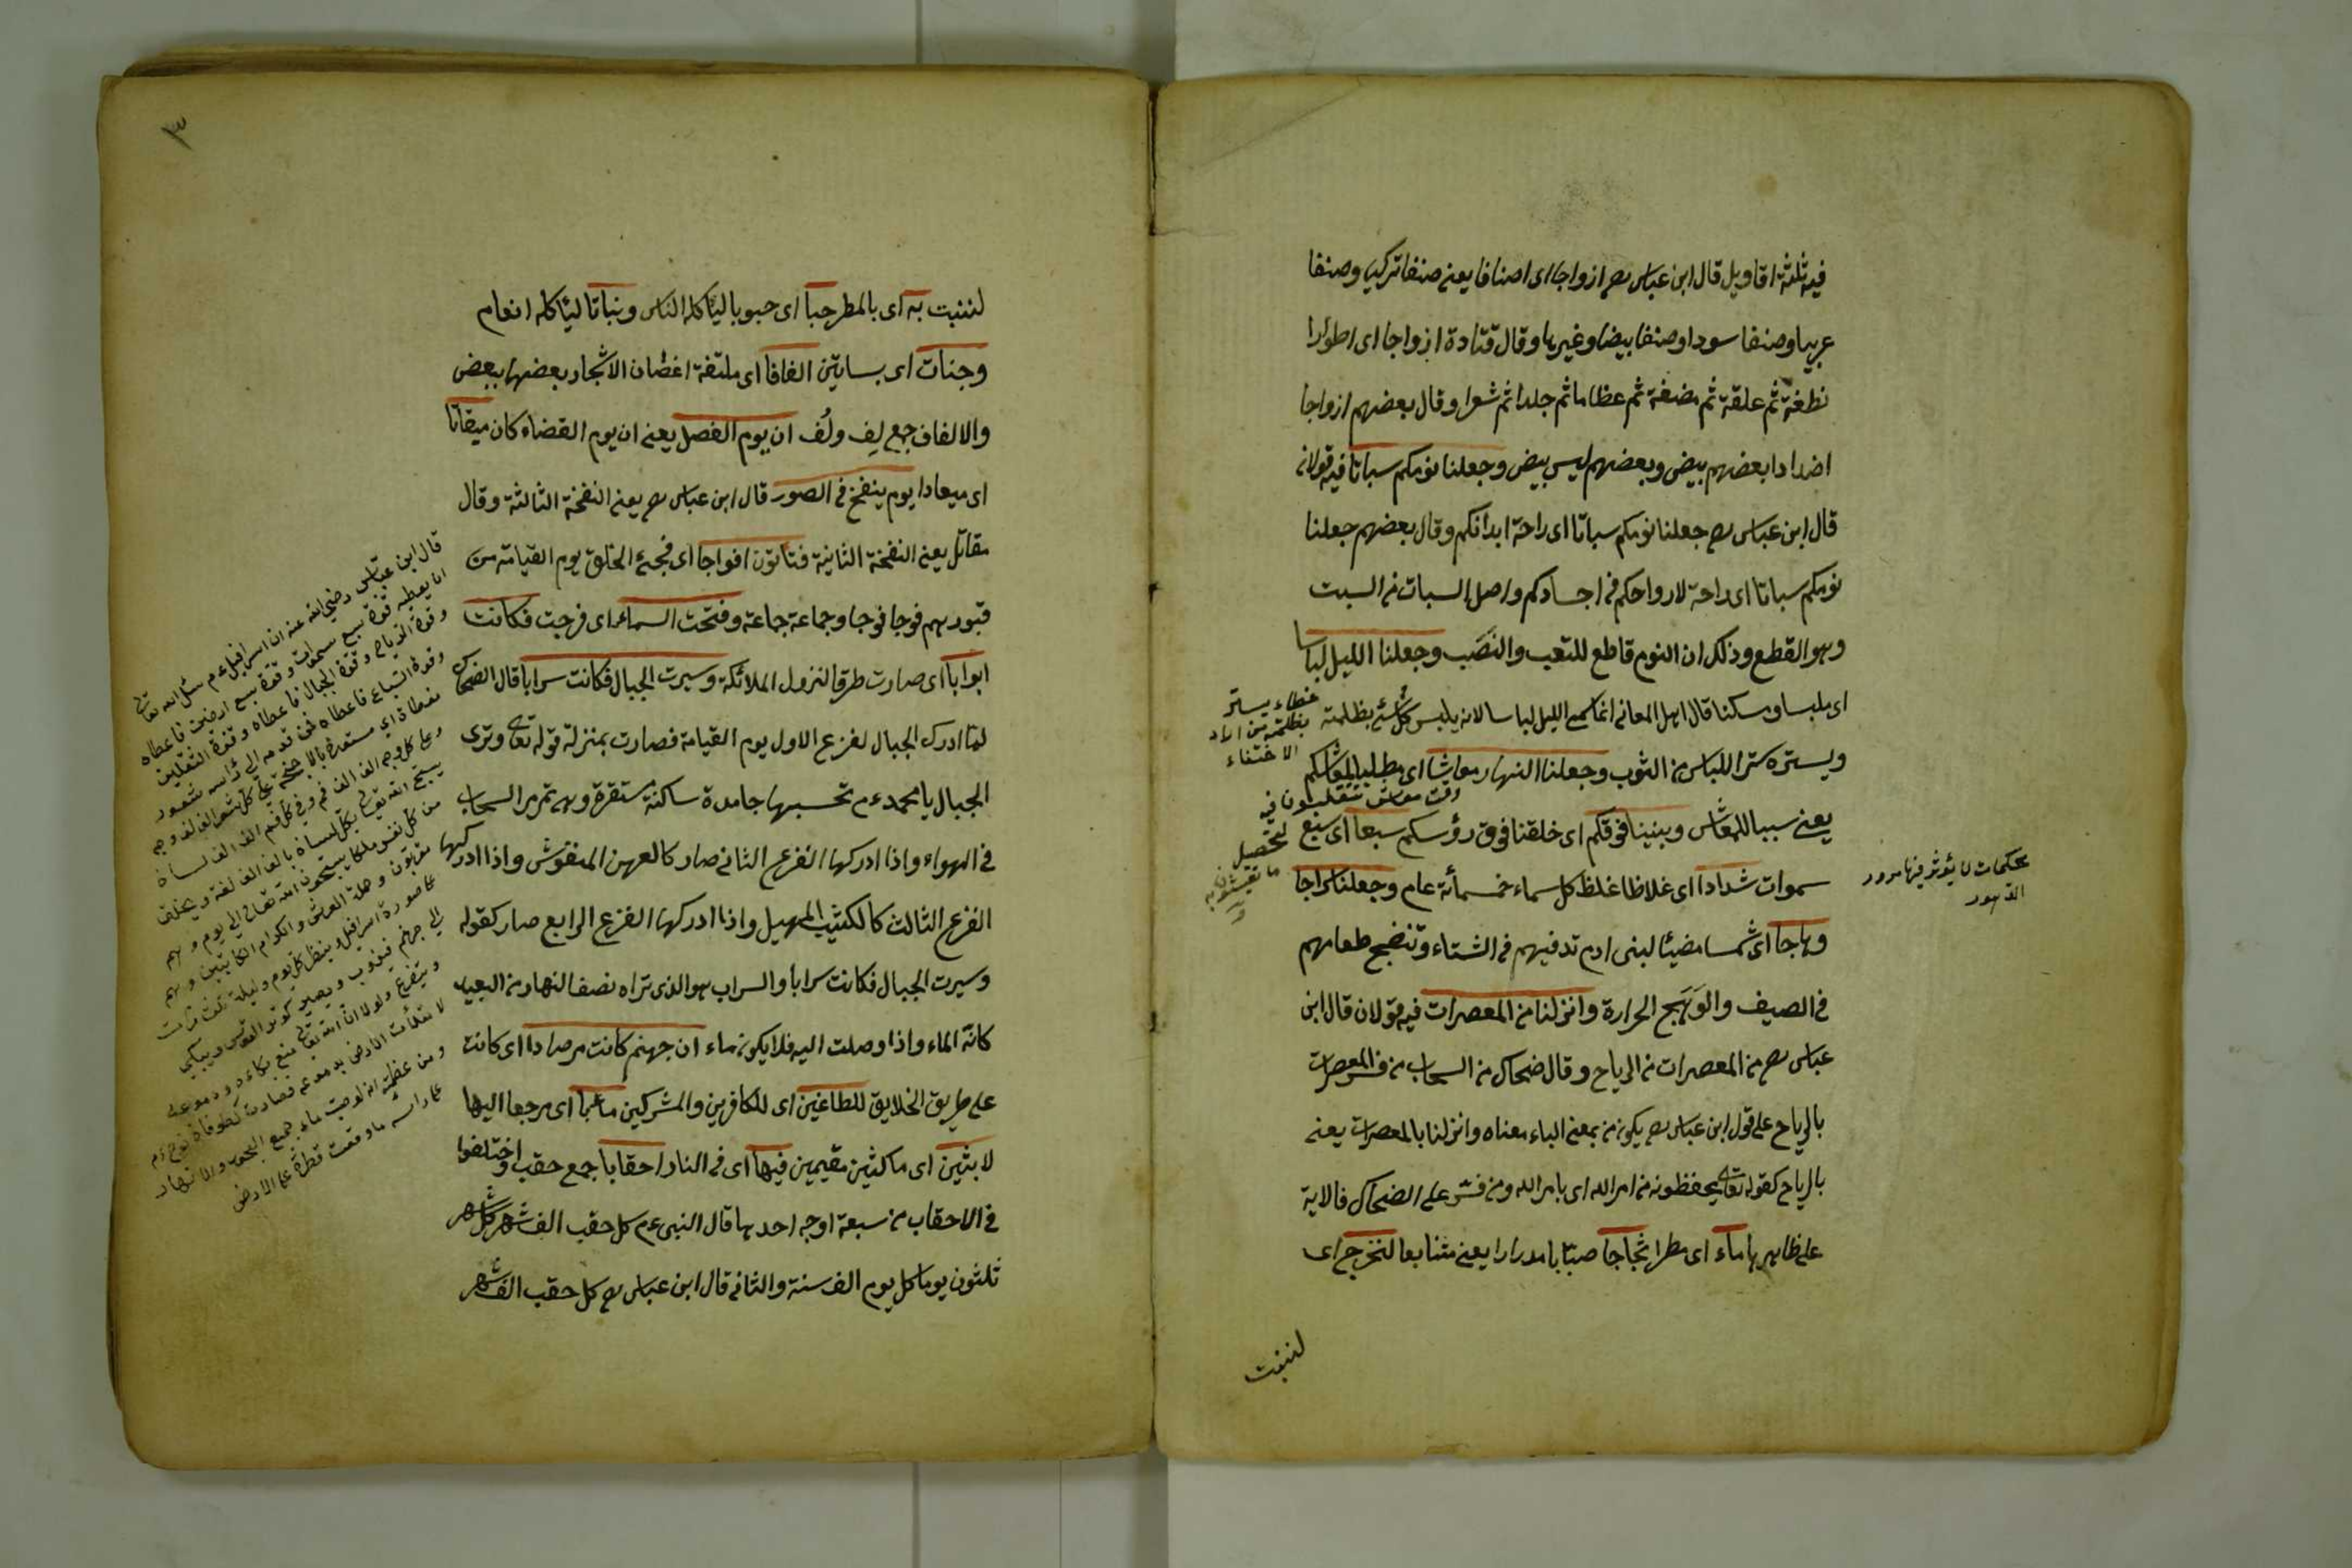 فيه ثلثة اقاويل قال ابن عباس رضـ ازواجا اى اصنافا يعنى صنفا تركيا وصنفا
عربيا وصنفا سودا وصنفا بيضا وغيرها وقال قتادة ازواجا اى اطوارا
نطفة ثم علقة ثم مضغة ثم عظاما ثم جلدا ثم شعرا وقال بعضهم ازواجا
اضدادا بعضهم بيض وبعضهم ليس بيض وجعلنا نومكم سباتا فيه قولان
قال ابن عباس رضـ جعلنا نومكم سباتا اى راحة ابدانكم وقال بعضهم جعلنا
نومكم سباتا اى راحة لارواحكم فى اجسادكم واصل السبات من السبت
وهو القطع وذلك ان النوم قاطع للتعب والنَصَب وجعلنا الليل لباسا
اى ملبسا وسكنا قال اهل المعانى انما سمى الليل لباسا لانه يلبس كل شئ بظلمته
ويستره ستر اللباس من الثوب وجعلنا النهار معاشا اى مطلبا لمعاشكم
يعنى سببا للمعاش وبنينا فوقكم اى خلقنا فوق رؤسكم سبعا اى سبع
سموات شدادا اى غلاظا غلظ كل سماء خمسمأئة عام وجعلنا سراجا
وهاجا اى شمسا مضيئا لبنى ادم تدفيهم فى الشتاء وتنضج طعامهم
فى الصيف والوَهَج الحرارة وانزلنا من المعصرات فيه قولان قال ابن
عباس رضـ من المعصرات من الرياح وقال ضحاك من السحاب من فسر المعصرات
بالرياح على قول ابن عباس رضـ يكون من بمعنى الباء معناه وانزلنا بالمعصرات يعنى
بالرياح كقوله تعالى يحفظونه من امر الله اى بامر الله ومن فسر على الضحاك فالاية
على ظاهرها ماء اى مطرا ثجاجا صبّابا مدرارا يعنى متتابعا لنخرج اى
لننبت
غطاء يستتر
بظلمته من اراد
الاختفاء
وقت معاش تتقلبون فيه
لتحصيل
ما تعيشون به
محكمات لا يؤثر فيها مرور
الدهور
٣
لننبت به اى بالمطر حبا اى حبوبا ليأكله الناس ونباتا ليأكله انعام
وجنات اى بساتين الفافا اى ملتفة اغصان الاشجار بعضها ببعض
والالفاف جمع لِف ولُف ان يوم الفصل يعنى ان يوم القضاء كان ميقاتا
اى ميعادا يوم ينفخ فى الصور قال ابن عباس رضـ يعنى النفخة الثالثة وقال
مقاتل يعنى النفخة الثانية فتاتون افواجا اى فجئ الخلق يوم القيامة من
قبورهم فوجا فوجا وجماعة جماعة وفتحت السماء اى فرجت فكانت
ابوابا اى صارت طرقا لنزول الملائكة وسيرت الجبال فكانت سرابا قال الضحاك
لما ادرك الجبال لفزع الاول يوم القيامة فصارت بمنزلة قوله تعالى وترى
الجبال يا محمد عم تحسبها جامدة ساكنة مستقرة وهى تمر مر السحاب
فى الهواء واذا ادركها الفزع الثانى صار كالعهن المنفوش واذا ادركها
الفزع الثالث كالكثيب المهيل واذا ادركها الفزع الرابع صار كقوله
وسيرت الجبال فكانت سرابا والسراب هو الذى تراه نصف النهار من البعيد
كانّه الماء واذا وصلت اليه فلا يكون ماء ان جهنم كانت مرصادا اى كانت
على طريق الخلايق للطاغين اى للكافرين والمشركين مأبا اى مرجعا اليها
لابثين اى ماكثين مقيمين فيها اى فى النار احقابا جمع حقب واختلفوا
فى الاحقاب من سبعة اوجه احدها قال النبى عم كل حقب الف شهر كل شهر
ثلثون يوما كل يوم الف سنة والثانى قال ابن عباس رضـ كل حقب الف شهر
قال ابن عبّاس رضى الله عنه ان اسرافيل عم سئل الله تعالى
ان يعطيه قوة سبع سموات وقوة سبع ارضين فاعطاه
وقوة الرياح وقوة الجبال فاعطاه وقوة الثقلين
وقوة السباع فاعطاه فمن قدمه الى رأسه شعور
وعلى كل وجه الف الف فم وفى كل فم الف الف لسان
يسبح الله تعالى بكل لسان بالف الف لغة ويخلق
من كل نفس ملكا يسبحون الله تعالى الى يوم
مقربون وحملة العرش والكرام الكاتبين وهم
على صورة اسرافيل وينظر كل يوم وليلة ثلث مرات
الى جهنم فيذوب ويصير كوتر القوس ويبكى
ومن عظمته انه لو صب ماء جميع البحور والانهار
على رأسه ما وقعت قطرة على الارض